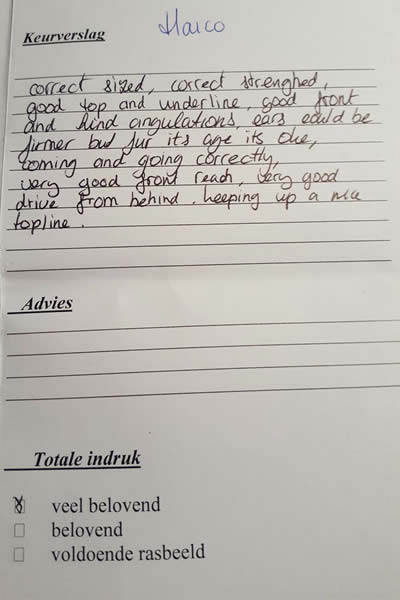 Haico
Keurverslag
correct sized, correct strenghed,
good top and underline, good front
and hind angulations, ears could be
firmer but fur it's age its oke,
coming and going correctly,
very good front reach, very good
drive from behind. keeping up a nice
topline.
Advies
Totale indruk
veel belovend
belovend
voldoende rasbeeld